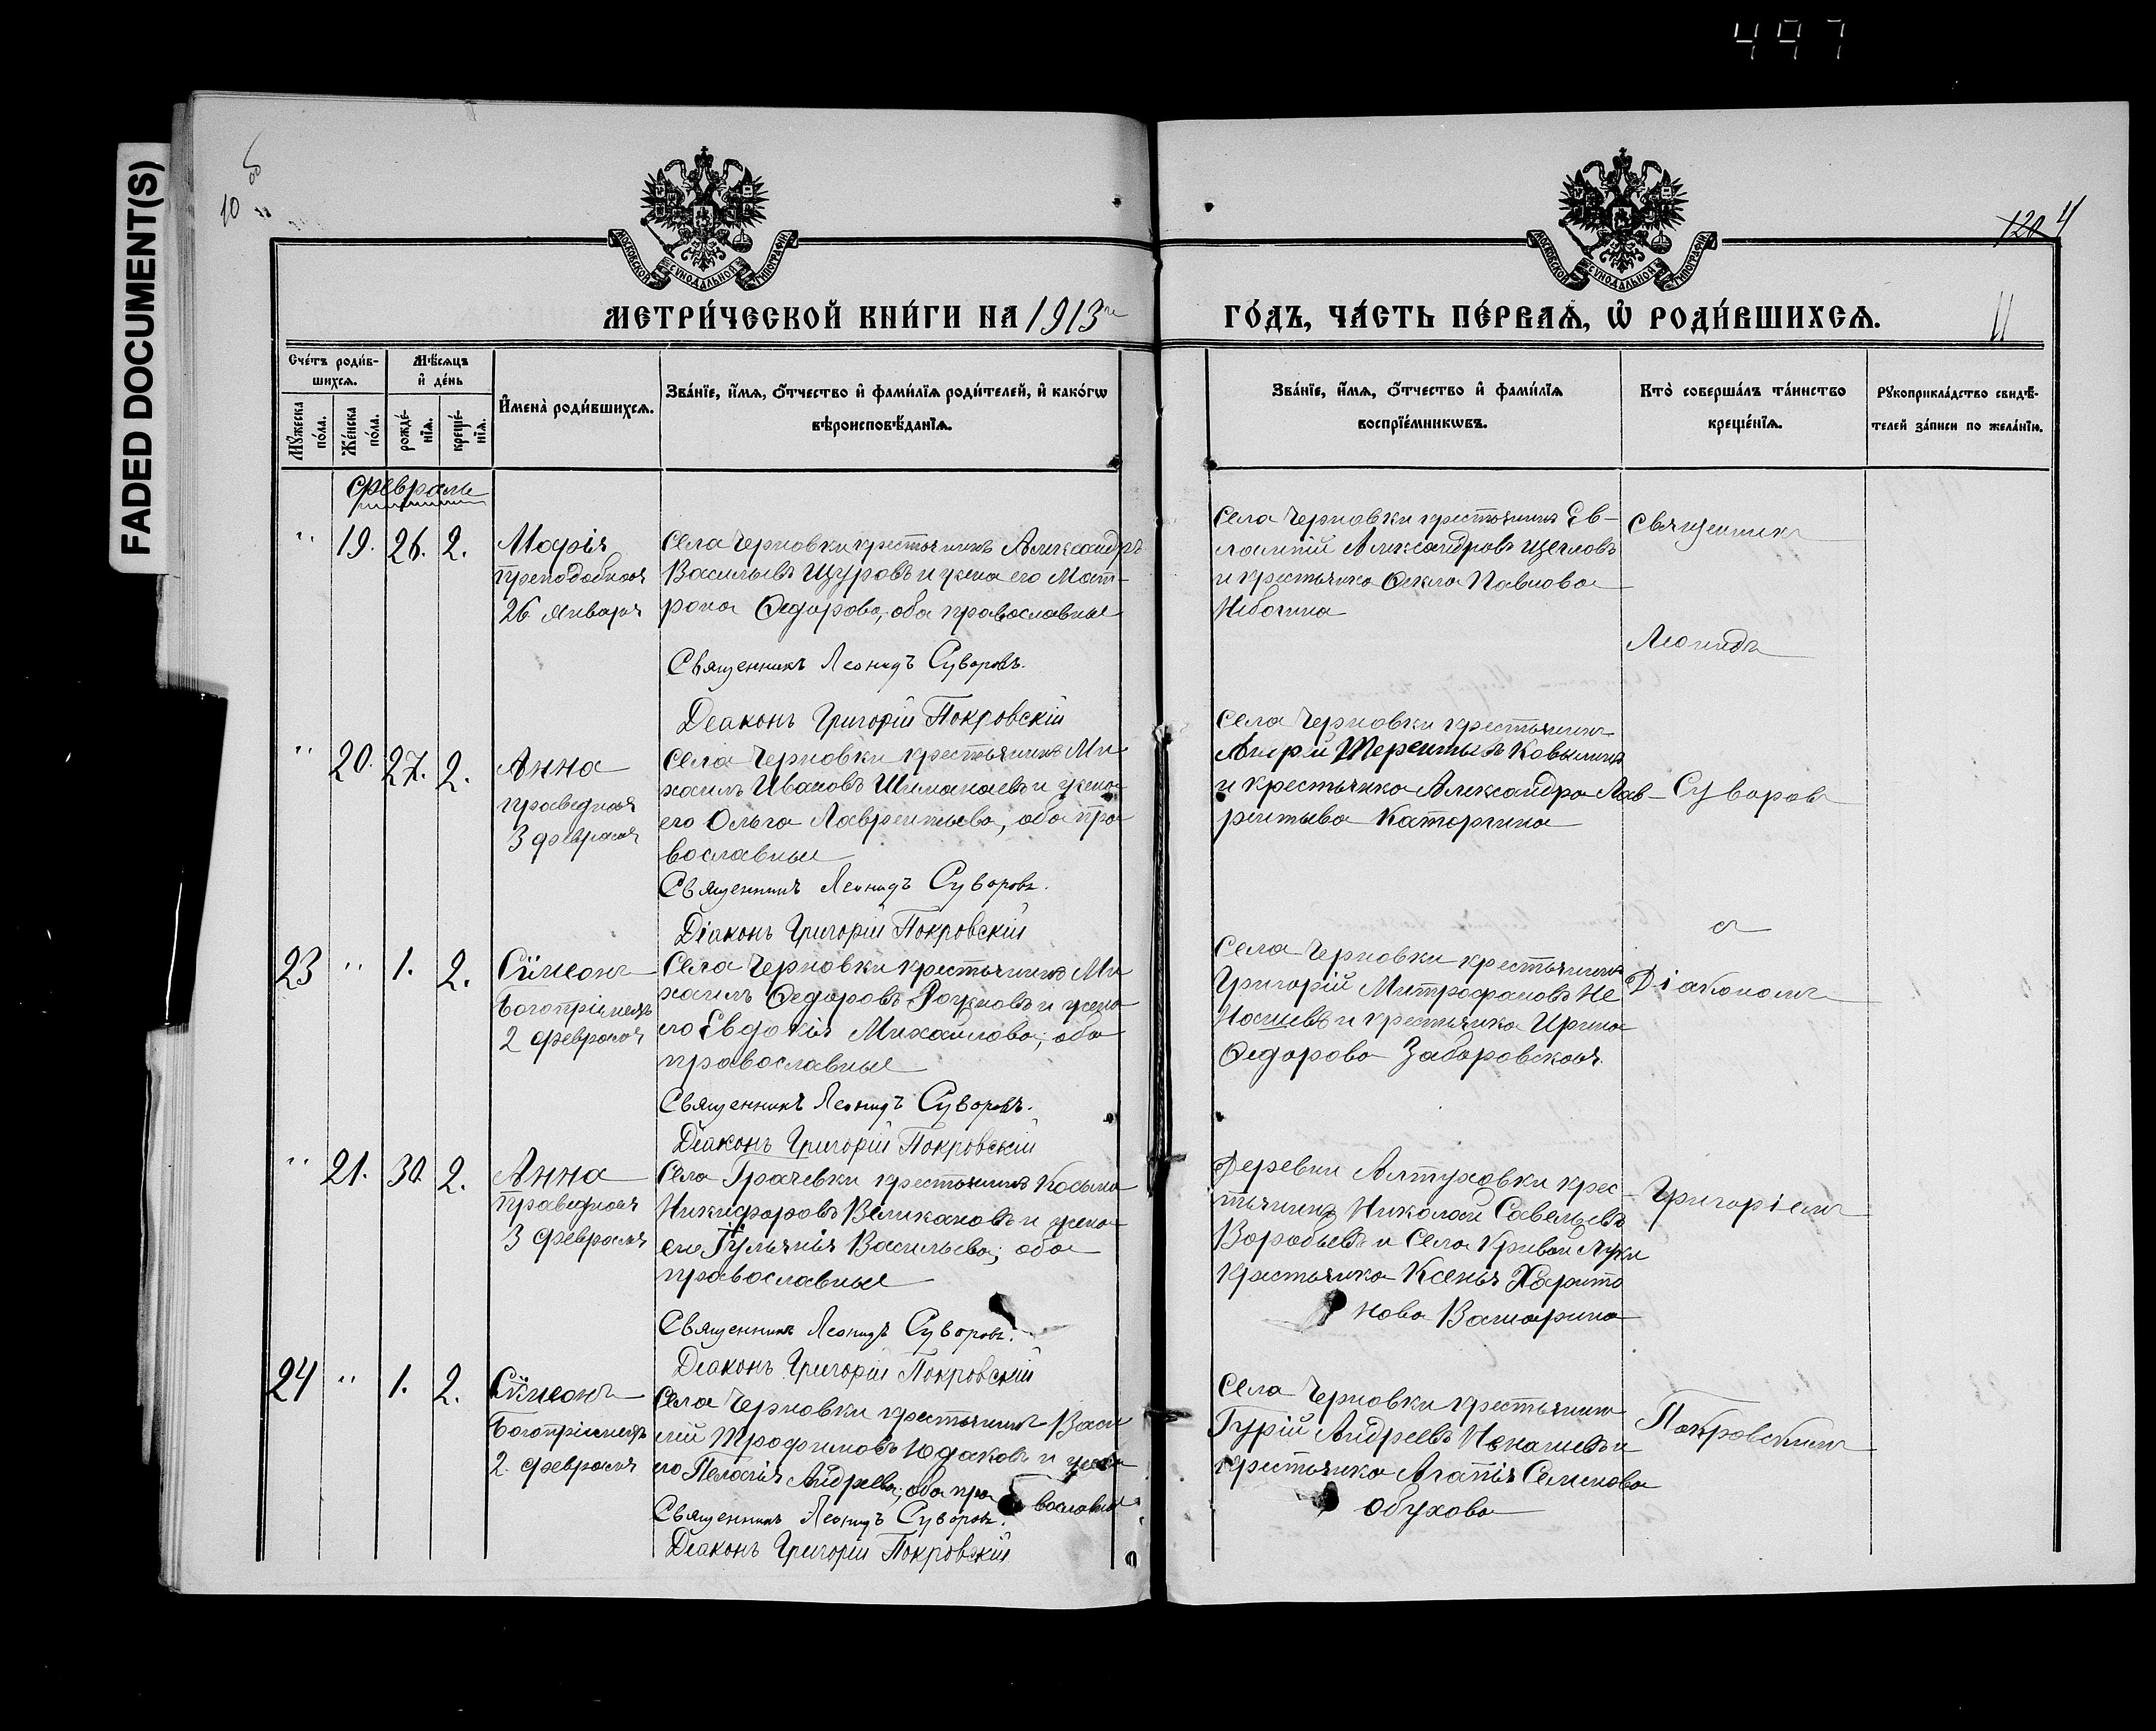 497
FADED DOCUMENT(S)
10 об
120 11
МОСКОВСКОЙ СѴНОДАЛЬНОЙ ТИПОГРАФІИ
МОСКОВСКОЙ СѴНОДАЛЬНОЙ ТИПОГРАФІИ
МЕТРИ́ЧЕСКОЙ КНИ́ГИ НА 1913й
ГО́ДЪ, ЧА́СТЬ ПЕ́РВАѦ, Ѡ РОДИ́ВШИХСѦ.
11
Сче́тъ роди́в-
шихсѧ.
Мѣ́сѧцъ
и҆ де́нь
И҆мена̀ роди́вшихсѧ.
Зва́нїе, и҆́мѧ, ѻ҆́тчество и҆ фами́лїѧ роди́телей, и҆ како́гѡ
вѣроисповѣ́данїѧ.
Мꙋ́жеска
по́ла.
Же́нска
по́ла.
рожде́-
нїѧ.
креще́-
нїѧ.
Зва́нїе, и҆́мѧ, ѻ҆́тчество и҆ фами́лїѧ
воспрїе́мникѡвъ.
Кто̀ соверша́лъ та́инство
креще́нїѧ.
Рꙋкоприкла́дство свидѣ́-
телей за́писи по жела́нїю.
февраль
" 19. 26. 2.
Марія
преподобная
26 Января
Села Черновки крестьянинъ Александръ
Васильевъ Щуровъ и жена его Мат-
рона Ѳедорова, оба православные
Священникъ Леонидъ Суворовъ.
Діаконъ Григорій Покровскій
Села Черновки крестьянинъ Ев-
лампій Александровъ Щегловъ
и крестьянка Ѳекла Павлова
Священник
Леонидъ
" 20. 27. 2.
Анна
праведная
3 февраля
Села Черновки крестьянинъ Ми-
хаилъ Ивановъ Шиманаевъ и жена
его Ольга Лаврентьева, оба пра
вославные
Священникъ Леонидъ Суворовъ.
Діаконъ Григорій Покровскій
Села Черновки крестьянинъ
Андрей Терентьевъ Ковылинъ
и крестьянка Александра Лав-
рентьева Каторгина
Суворов
с
23 " 1. 2.
Сѵмеонъ
Богопріимецъ
2 февраля
Села Черновки крестьянинъ Ми
хаилъ Ѳедоровъ Рогужовъ и жена
его Евдокія Михайлова, оба
православные
Священникъ Леонидъ Суворовъ.
Діаконъ Григорій Покровскій
Села Черновки крестьянинъ
Григорій Митрофановъ Не
нашевъ и крестьянка Ирина
Ѳедорова Заборовская.
Діакономъ
" 21. 30. 2.
Анна
праведная
3 февраля
Села Грачевки крестьянинъ Косьма
Никифоровъ Великановъ и жена
его Іульянія Васильева, оба
православные
Священникъ Леонидъ Суворовъ.
Діаконъ Григорій Покровскій
Деревни Алтуховки крес-
тьянинъ Николай Савельевъ
Воробьевъ и Села Кривой Луки
крестьянка Ксенья Харито
нова Вашарина
Григоріемъ
24 " 1. 2.
Сѵмеонъ
Богопріимецъ
2 февраля
Села Черновки крестьянинъ Васи
лій Трофимовъ Юдаковъ и жена
его Пелагія Андреева, оба пра
вославные
Священникъ Леонидъ Суворовъ.
Діаконъ Григорій Покровскій
Села Черновки крестьянинъ
Гурій Андреевъ Ненашевъ и
крестьянка Агапія Семенова
Обухова
Покровскимъ